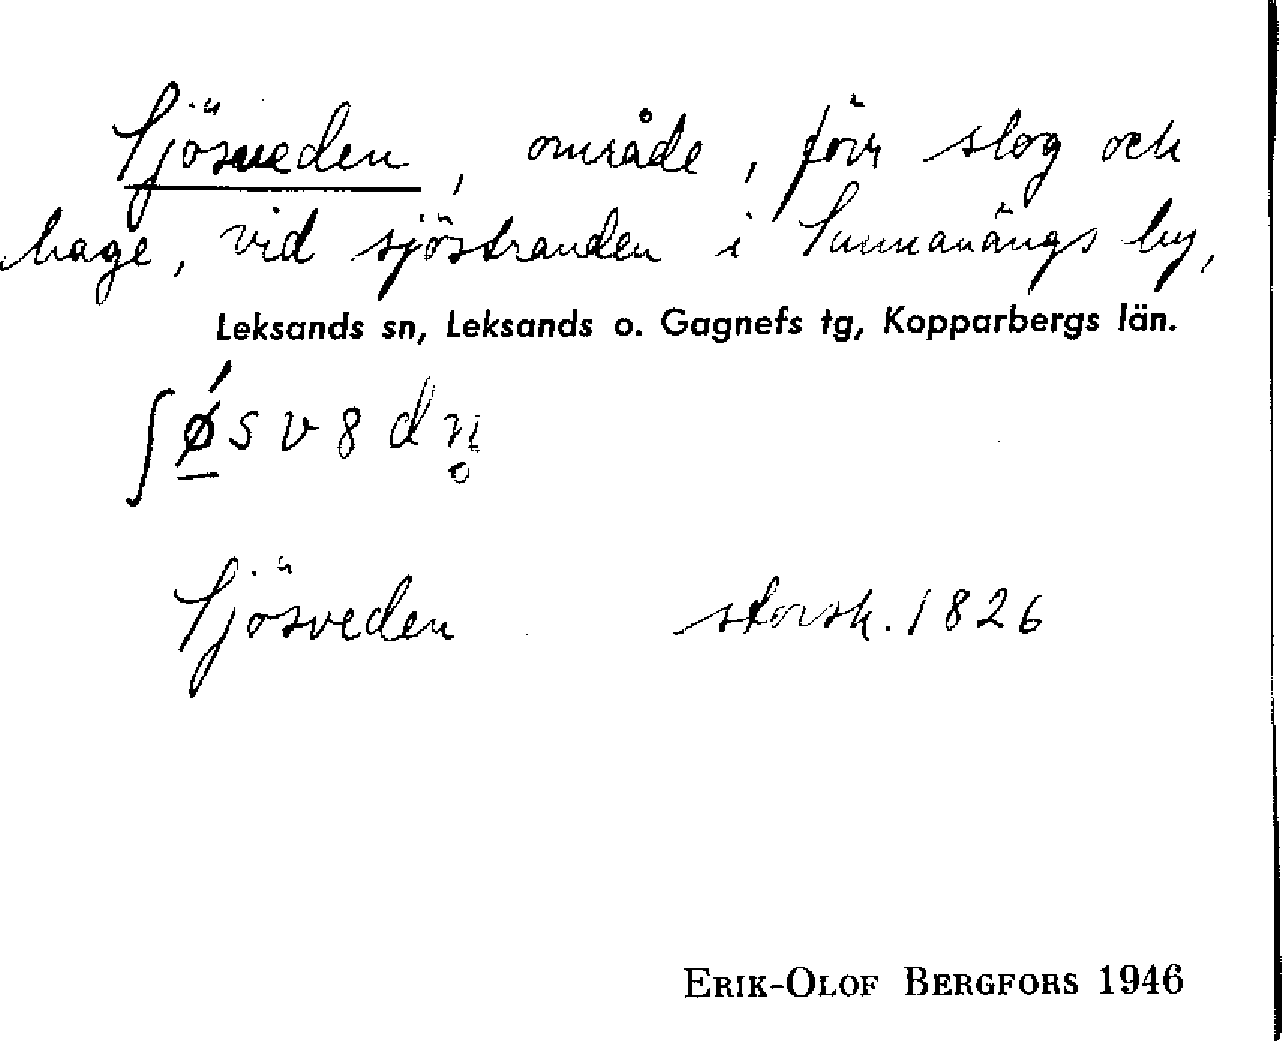 Sjösveden, område, förr slog och
hage, vid sjöstranden i Sunnanängs by,
Leksands sn, Leksands o. Gagnefs tg, Kopparbergs län.
ʃǿ̲sv8dn̥
Sjösveden storsk. 1826
ERIK-OLOF BERGFORS 1946